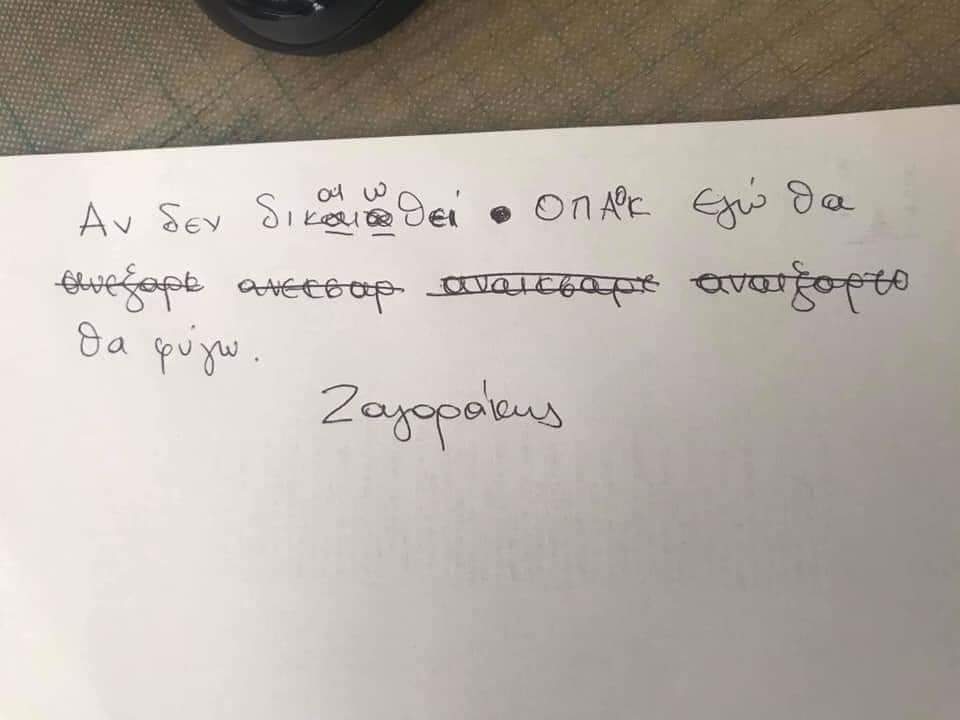 Αν δεν δικαιωθεί • ΟΠΑΟΚ εγώ θα
ανεξαρε ανεεσαρ αναιεσαρε αναιξαρτο
θα φύγω.
Ζαγοράκης